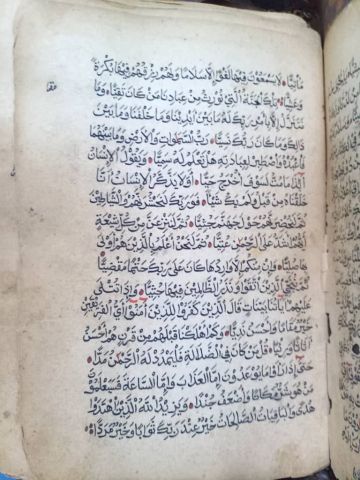 مَأْتِيًّا لَا يَسْمَعُونَ فِيهَا لَغْوًا إِلَّا سَلَامًا وَلَهُمْ رِزْقُهُمْ فِيهَا بُكْرَةً
وَعَشِيًّا تِلْكَ الْجَنَّةُ الَّتِي نُورِثُ مِنْ عِبَادِنَا مَنْ كَانَ تَقِيًّا وَمَا
نَتَنَزَّلُ إِلَّا بِأَمْرِ رَبِّكَ لَهُ مَا بَيْنَ أَيْدِينَا وَمَا خَلْفَنَا وَمَا بَيْنَ
ذَلِكَ وَمَا كَانَ رَبُّكَ نَسِيًّا رَبُّ السَّمَوَاتِ وَالْأَرْضِ وَمَا بَيْنَهُمَا
فَاعْبُدْهُ وَاصْطَبِرْ لِعِبَادَتِهِ هَلْ تَعْلَمُ لَهُ سَمِيًّا وَيَقُولُ الْإِنْسَانُ
أَإِذَا مَا مِتُّ لَسَوْفَ أُخْرَجُ حَيًّا أَوَلَا يَذْكُرُ الْإِنْسَانُ أَنَّا
خَلَقْنَاهُ مِنْ قَبْلُ وَلَمْ يَكُ شَيْئًا فَوَرَبِّكَ لَنَحْشُرَنَّهُمْ وَالشَّيَاطِينَ
ثُمَّ لَنُحْضِرَنَّهُمْ حَوْلَ جَهَنَّمَ جِثِيًّا ثُمَّ لَنَنْزِعَنَّ مِنْ كُلِّ شِيعَةٍ
أَيُّهُمْ أَشَدُّ عَلَى الرَّحْمَنِ عِتِيًّا ثُمَّ لَنَحْنُ أَعْلَمُ بِالَّذِينَ هُمْ أَوْلَى
بِهَا صِلِيًّا وَإِنْ مِنْكُمْ إِلَّا وَارِدُهَا كَانَ عَلَى رَبِّكَ حَتْمًا مَقْضِيًّا
ثُمَّ نُنَجِّي الَّذِينَ اتَّقَوْا وَنَذَرُ الظَّالِمِينَ فِيهَا جِثِيًّا وَإِذَا تُتْلَى
عَلَيْهِمْ آيَاتُنَا بَيِّنَاتٍ قَالَ الَّذِينَ كَفَرُوا لِلَّذِينَ آمَنُوا أَيُّ الْفَرِيقَيْنِ
خَيْرٌ مَقَامًا وَأَحْسَنُ نَدِيًّا وَكَمْ أَهْلَكْنَا قَبْلَهُمْ مِنْ قَرْنٍ هُمْ أَحْسَنُ
أَثَاثًا وَرِئْيًا قُلْ مَنْ كَانَ فِي الضَّلَالَةِ فَلْيَمْدُدْ لَهُ الرَّحْمَنُ مَدًّا
حَتَّى إِذَا رَأَوْا مَا يُوعَدُونَ إِمَّا الْعَذَابَ وَإِمَّا السَّاعَةَ فَسَيَعْلَمُونَ
مَنْ هُوَ شَرٌّ مَكَانًا وَأَضْعَفُ جُنْدًا وَيَزِيدُ اللَّهُ الَّذِينَ اهْتَدَوْا
هُدًى وَالْبَاقِيَاتُ الصَّالِحَاتُ خَيْرٌ عِنْدَ رَبِّكَ ثَوَابًا وَخَيْرٌ مَرَدًّا